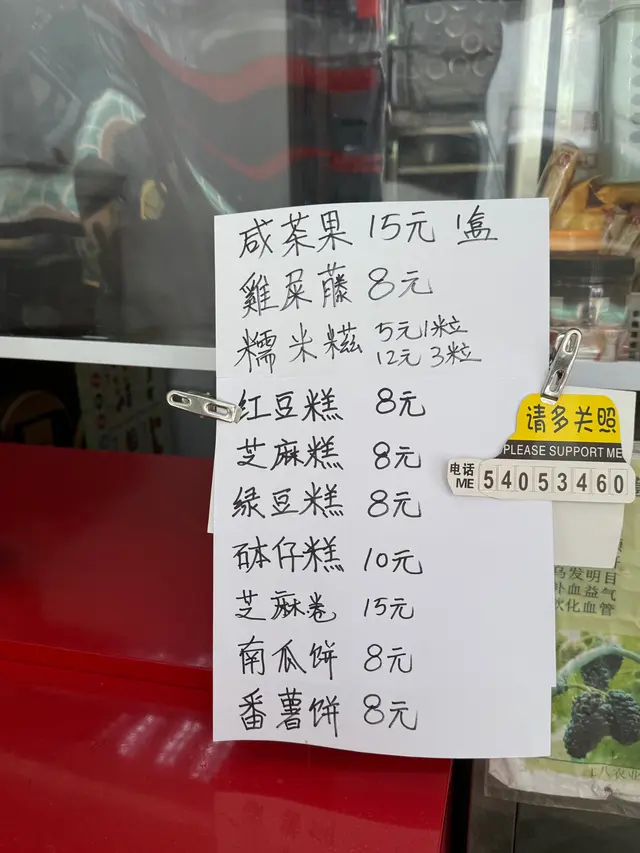 咸茶果 15元 1盒
雞屎藤 8元
糯米糍 5元1粒
12元3粒
红豆糕 8元
芝麻糕 8元
绿豆糕 8元
砵仔糕 10元
芝麻卷 15元
南瓜饼 8元
番薯饼 8元
请多关照
PLEASE SUPPORT ME
电话
ME 54053460
乌发明目
补血益气
软化血管